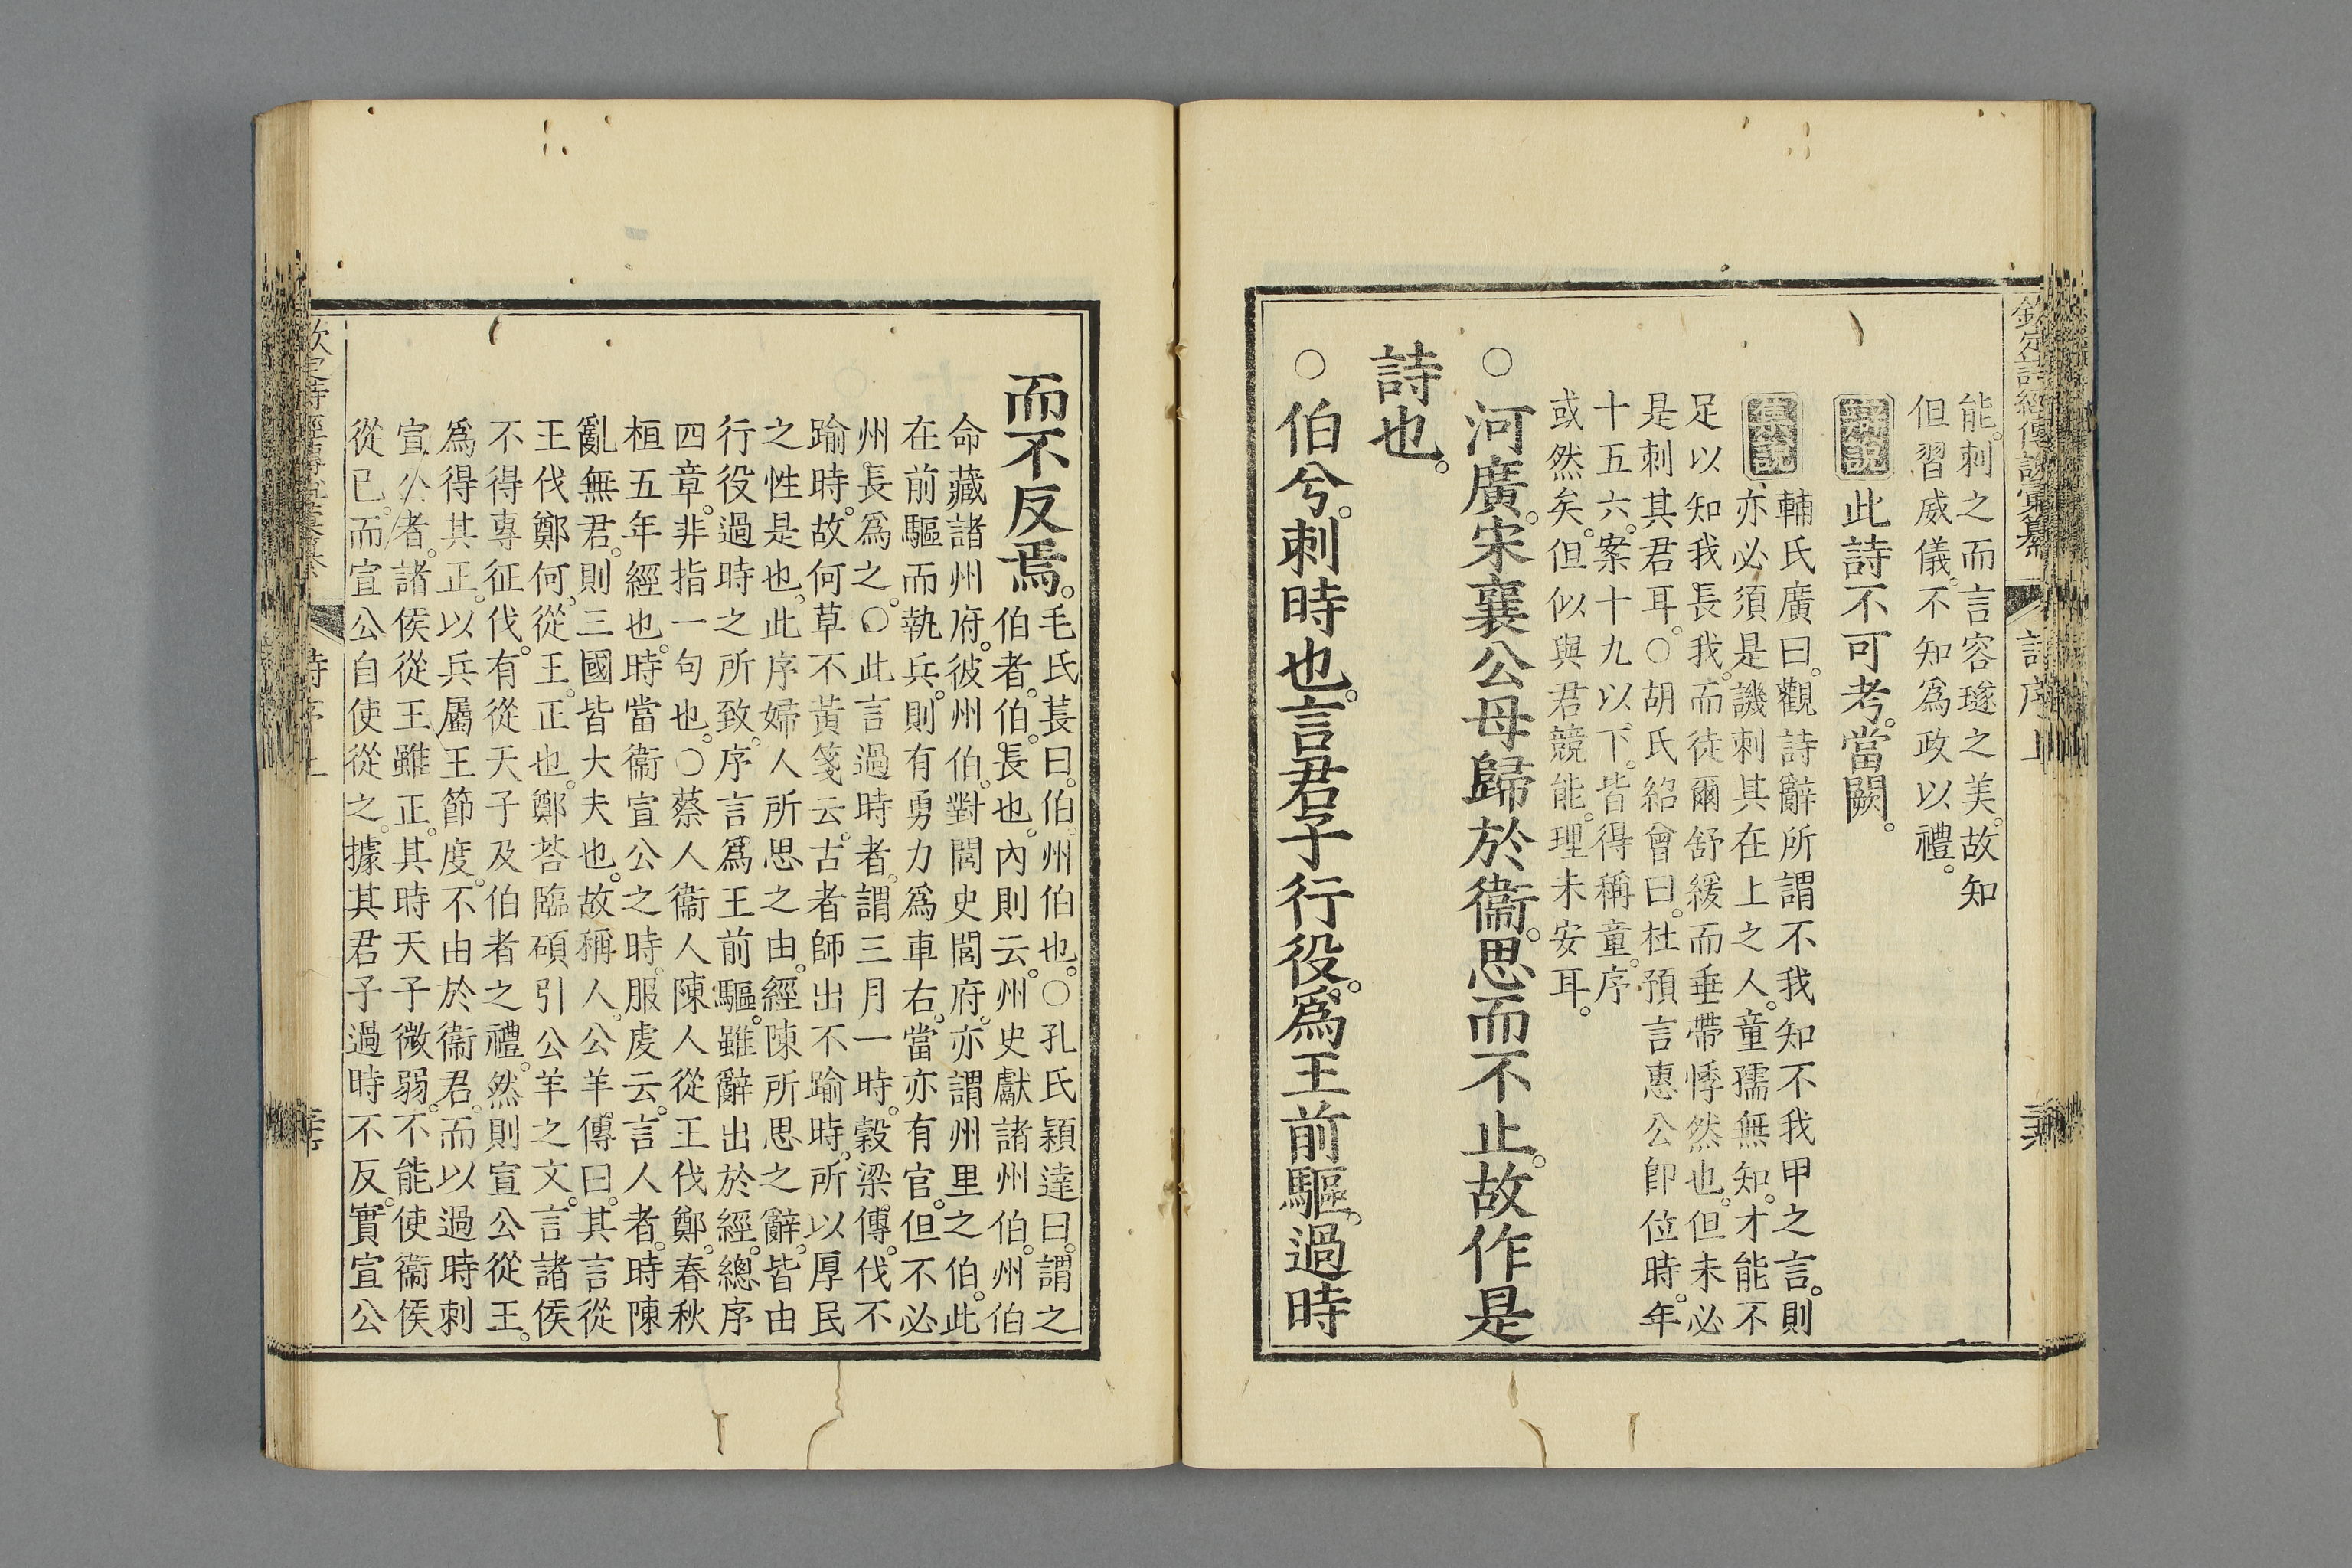 欽定詩經傳說彙纂 詩序上
能刺之而言容璲之美故知
但習威儀不知爲政以禮
辨說 此詩不可考當闕
集說 輔氏廣曰觀詩辭所謂不我知不我甲之言則
亦必須是譏刺其在上之人童孺無知才能不
足以知我長我而徒爾舒緩而垂帶悸然也但未必
是刺其君耳○胡氏紹曾曰杜預言惠公卽位時年
十五六案十九以下皆得稱童序
或然矣但似與君競能理未安耳
○河廣宋襄公母歸於衞思而不止故作是
詩也
○伯兮刺時也言君子行役爲王前驅過時
而不反焉
毛氏萇曰伯州伯也○孔氏穎達曰謂之
伯者伯長也內則云州史獻諸州伯州伯
命藏諸州府彼州伯對閭史閭府亦謂州里之伯此
在前驅而執兵則有勇力爲車右當亦有官但不必
州長爲之○此言過時者謂三月一時穀梁傳伐不
踰時故何草不黃箋云古者師出不踰時所以厚民
之性是也此序婦人所思之由經陳所思之辭皆由
行役過時之所致序言爲王前驅雖辭出於經總序
四章非指一句也○蔡人衞人陳人從王伐鄭春秋
桓五年經也時當衞宣公之時服虔云言人者時陳
亂無君則三國皆大夫也故稱人公羊傳曰其言從
王伐鄭何從王正也鄭荅臨碩引公羊之文言諸侯
不得專征伐有從天子及伯者之禮然則宣公從王
爲得其正以兵屬王節度不由於衞君而以過時刺
宣公者諸侯從王雖正其時天子微弱不能使衞侯
從已而宣公自使從之據其君子過時不反實宣公